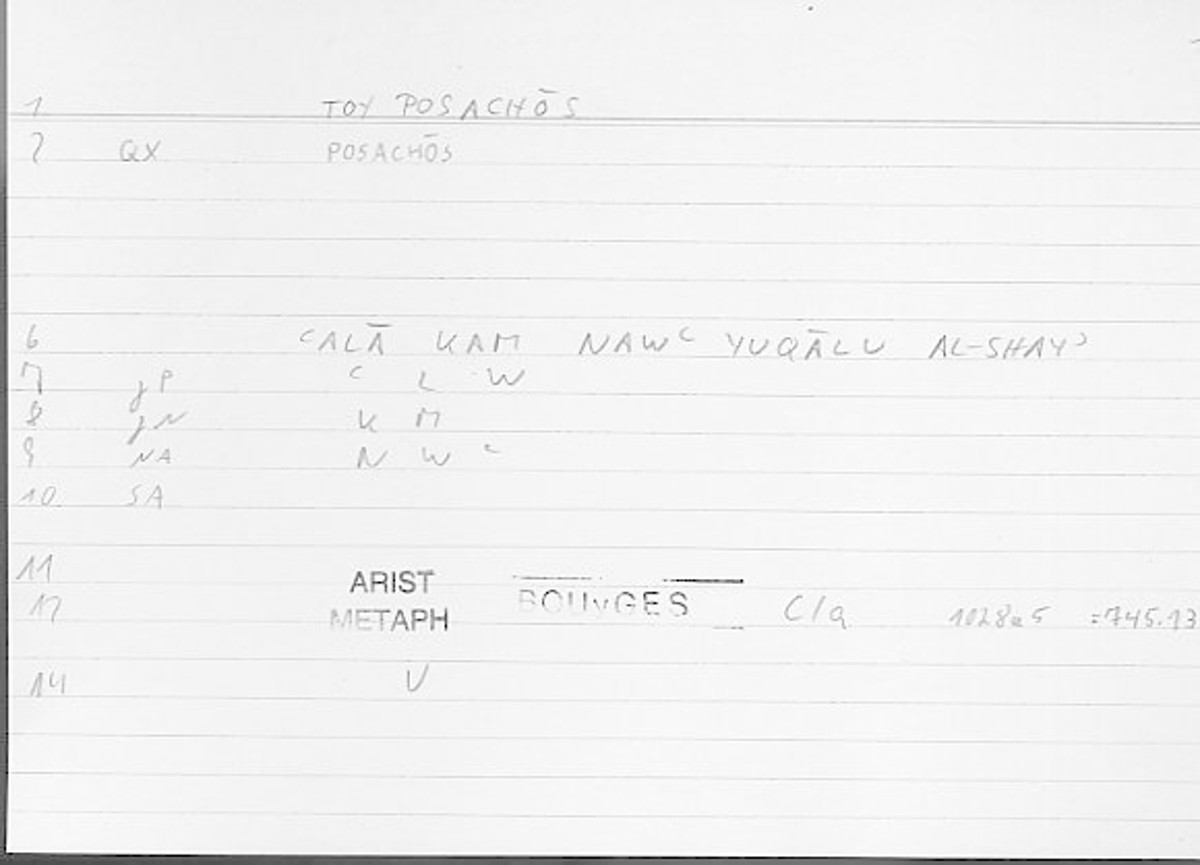 1 TOY POSACHŌS
2 QX POSACHŌS
6 ʿALĀ KAM NAWʿ YUQĀLU AL-SHAYʾ
7 jP ʿ L W
8 jN K M
9 NA N W ʿ
10 SA
11 ARIST
12 METAPH BOUYGES C/a 1028a5 =745.13
14 V